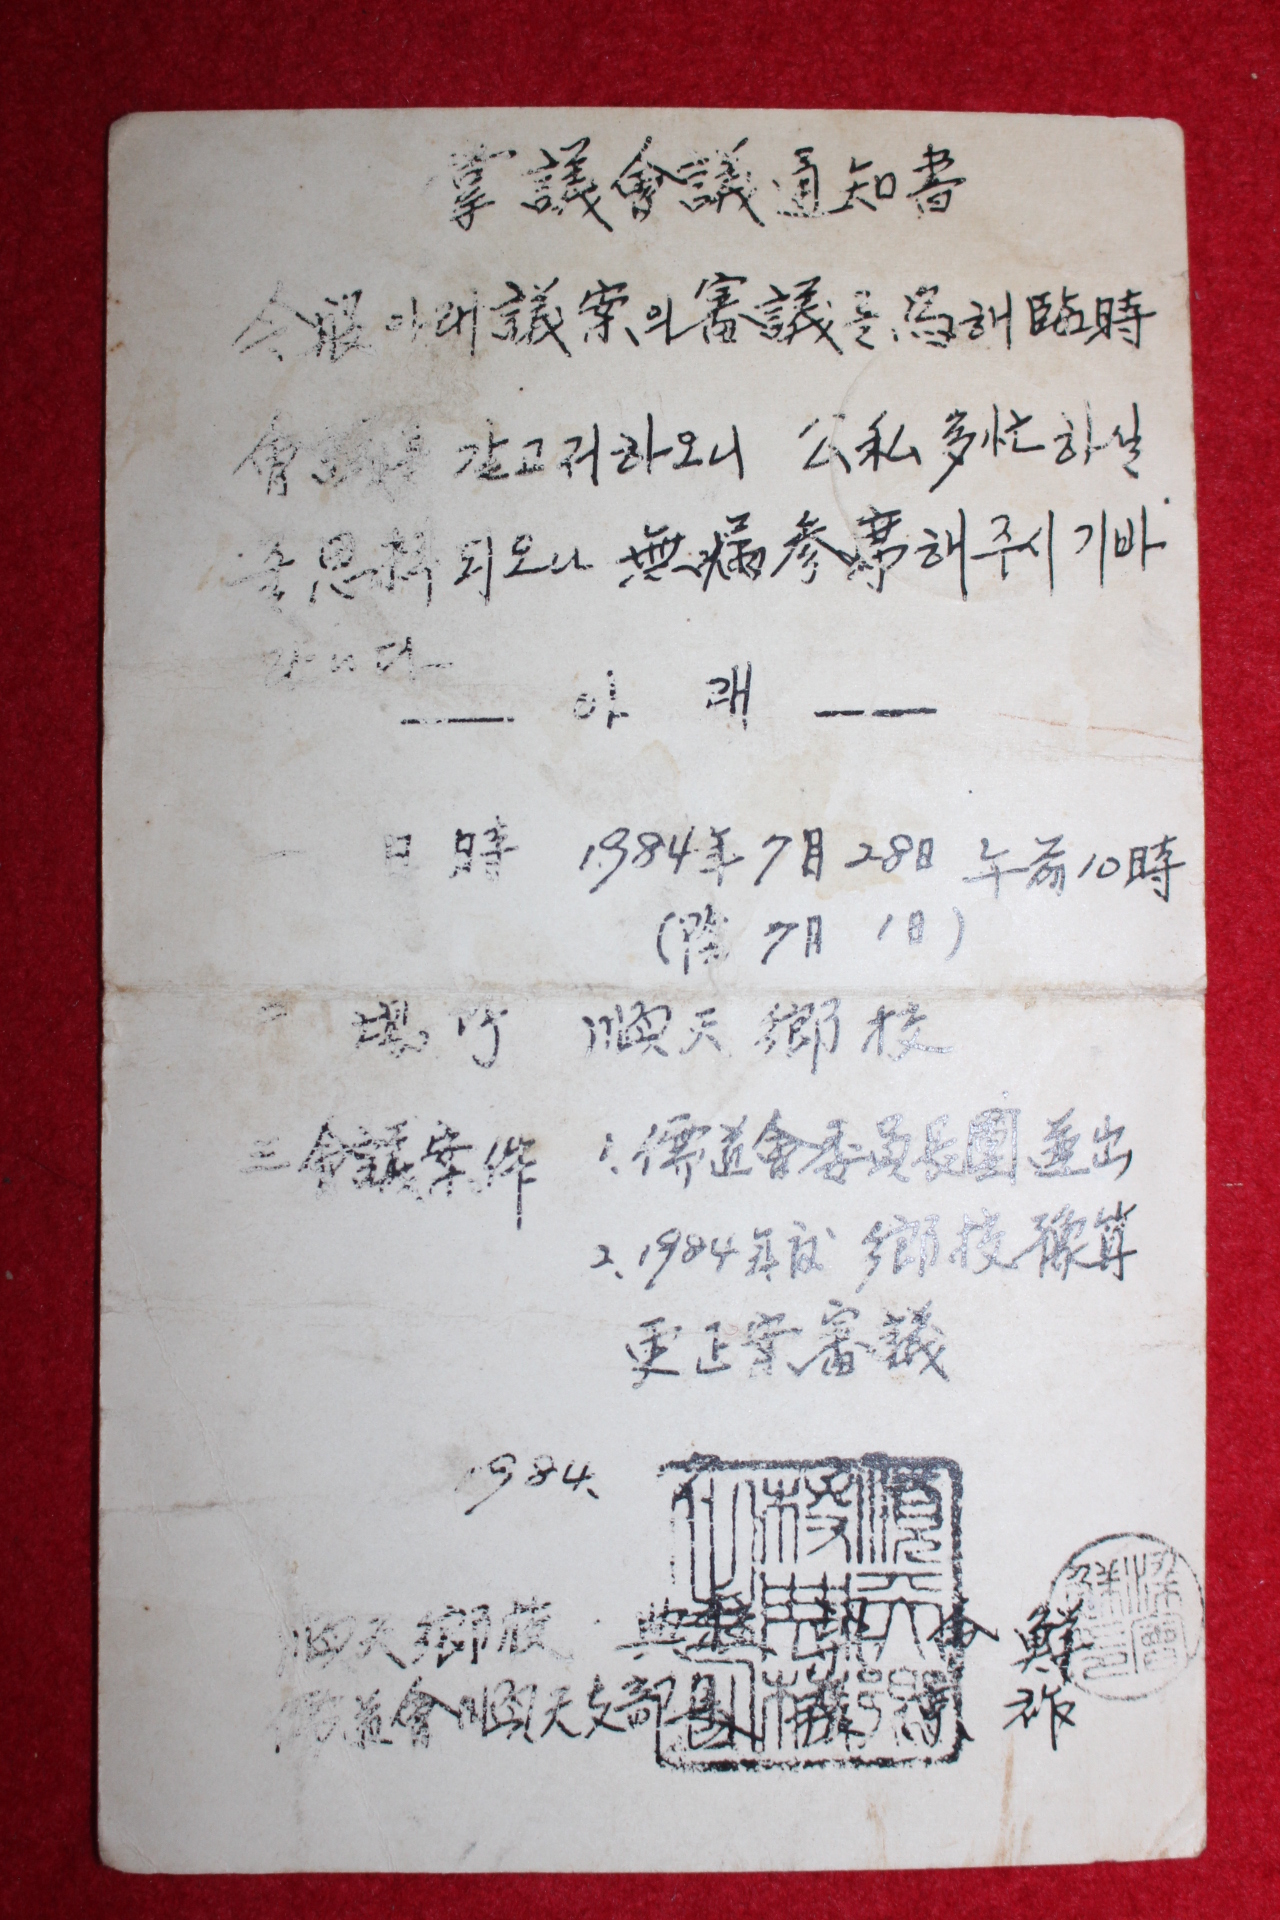 掌議會議通知書
今般 아래 議案의 審議를 爲해 臨時
會議를 갇고저하오니 公私多忙하실
줄 思料되오나 無漏參席해주시기바
랍니다
아래
一 日時 1984年 7月 28日 午前10時
(陰 7月 1日)
二 場所 順天鄕校
三 會議案件 1. 儒道會委員長團選出
2. 1984年度 鄕校豫算
更正案審議
1984. 7
順天鄕校 典校
儒道會順天支部長